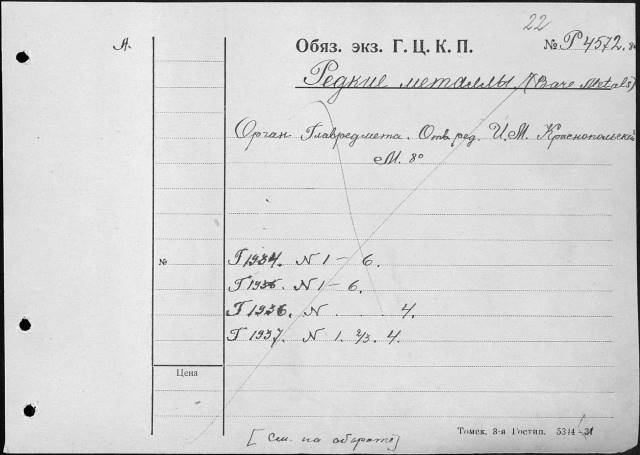 22
А. Обяз. экз. Г. Ц. К. П. № Р 4572. 8°
Редкие металлы (Rare Metals)
Орган Главредмета. Отв. ред. И. М. Краснопольский
М. 8°
№
Г 1934. N 1 – 6.
Г 1935. N 1 – 6.
Г 1936. N . . . 4.
Г 1937. N 1. 2/3. 4.
Цена
Томск. 3-я Гостип. 5344-31
[См. на обороте]